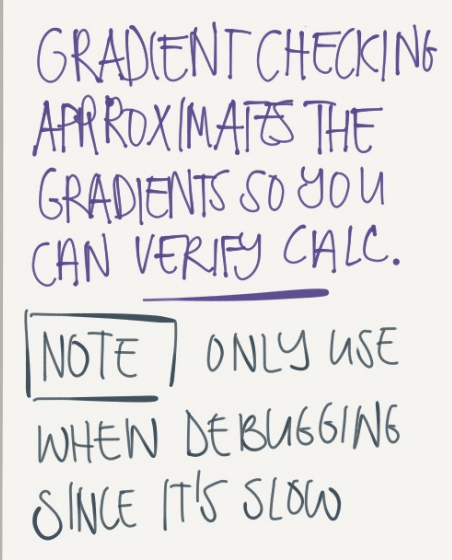 GRADIENT CHECKING
APPROXIMATES THE
GRADIENTS SO YOU
CAN VERIFY CALC.
NOTE ONLY USE
WHEN DEBUGGING
SINCE IT'S SLOW